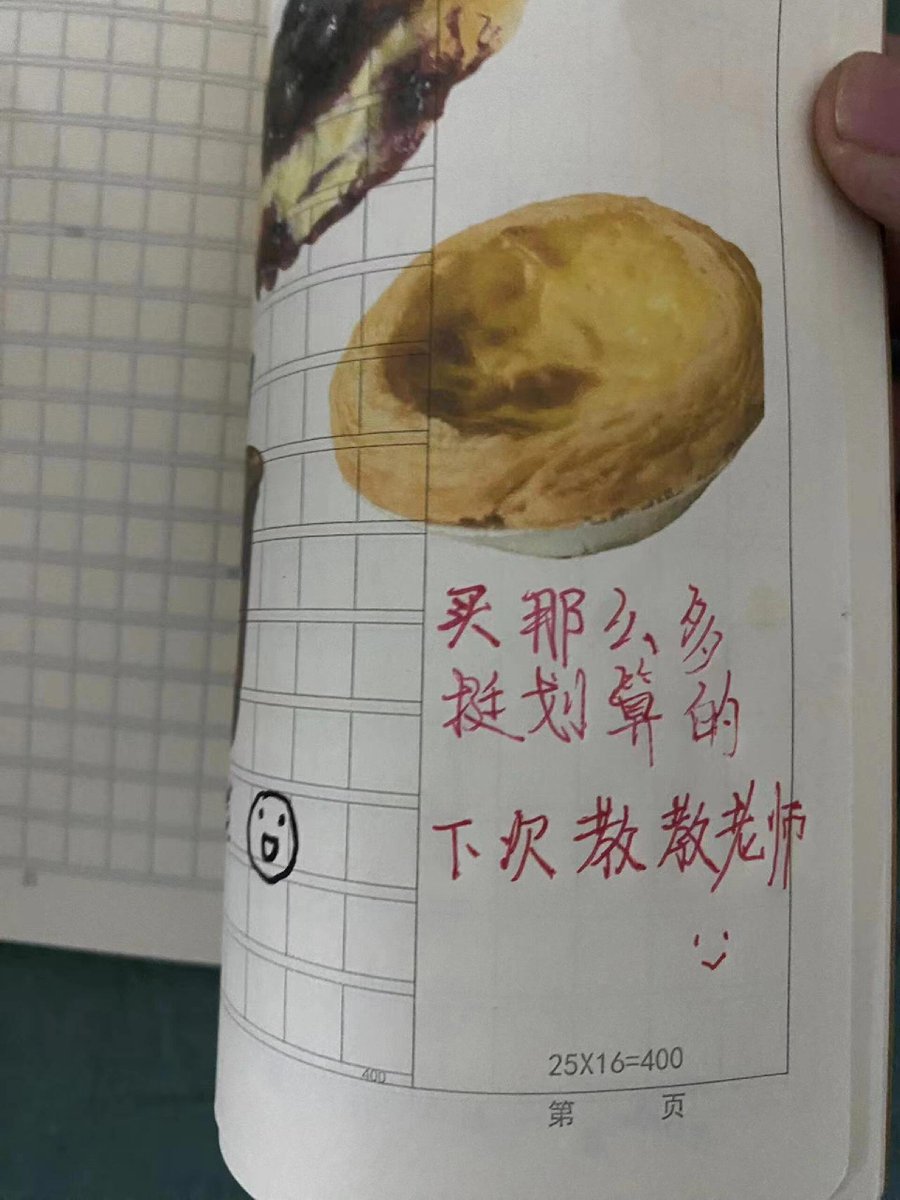 买那么多
挺划算的
下次教教老师
400
25X16=400
第 页